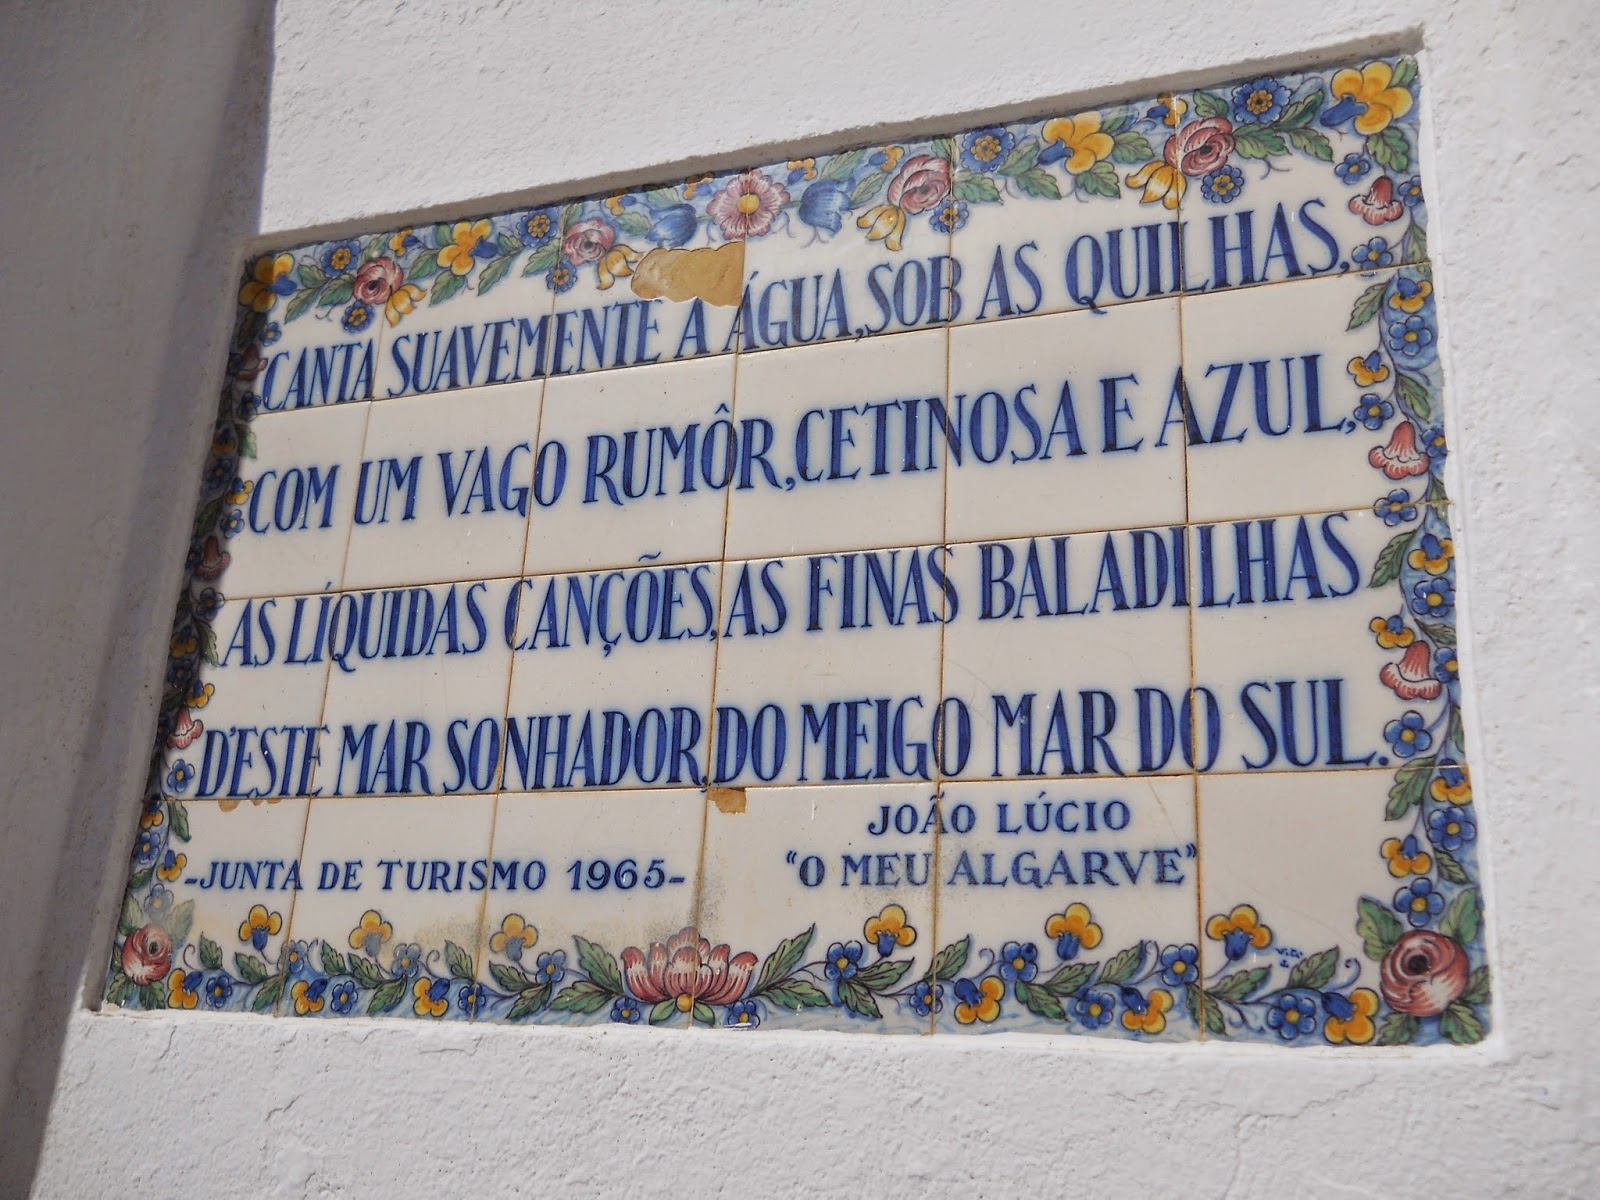 CANTA SUAVEMENTE A ÁGUA, SOB AS QUILHAS,
COM UM VAGO RUMÔR, CETINOSA E AZUL,
AS LÍQUIDAS CANÇÕES, AS FINAS BALADILHAS
D'ESTE MAR SONHADOR, DO MEIGO MAR DO SUL.
JOÃO LÚCIO
"O MEU ALGARVE"
-JUNTA DE TURISMO 1965-